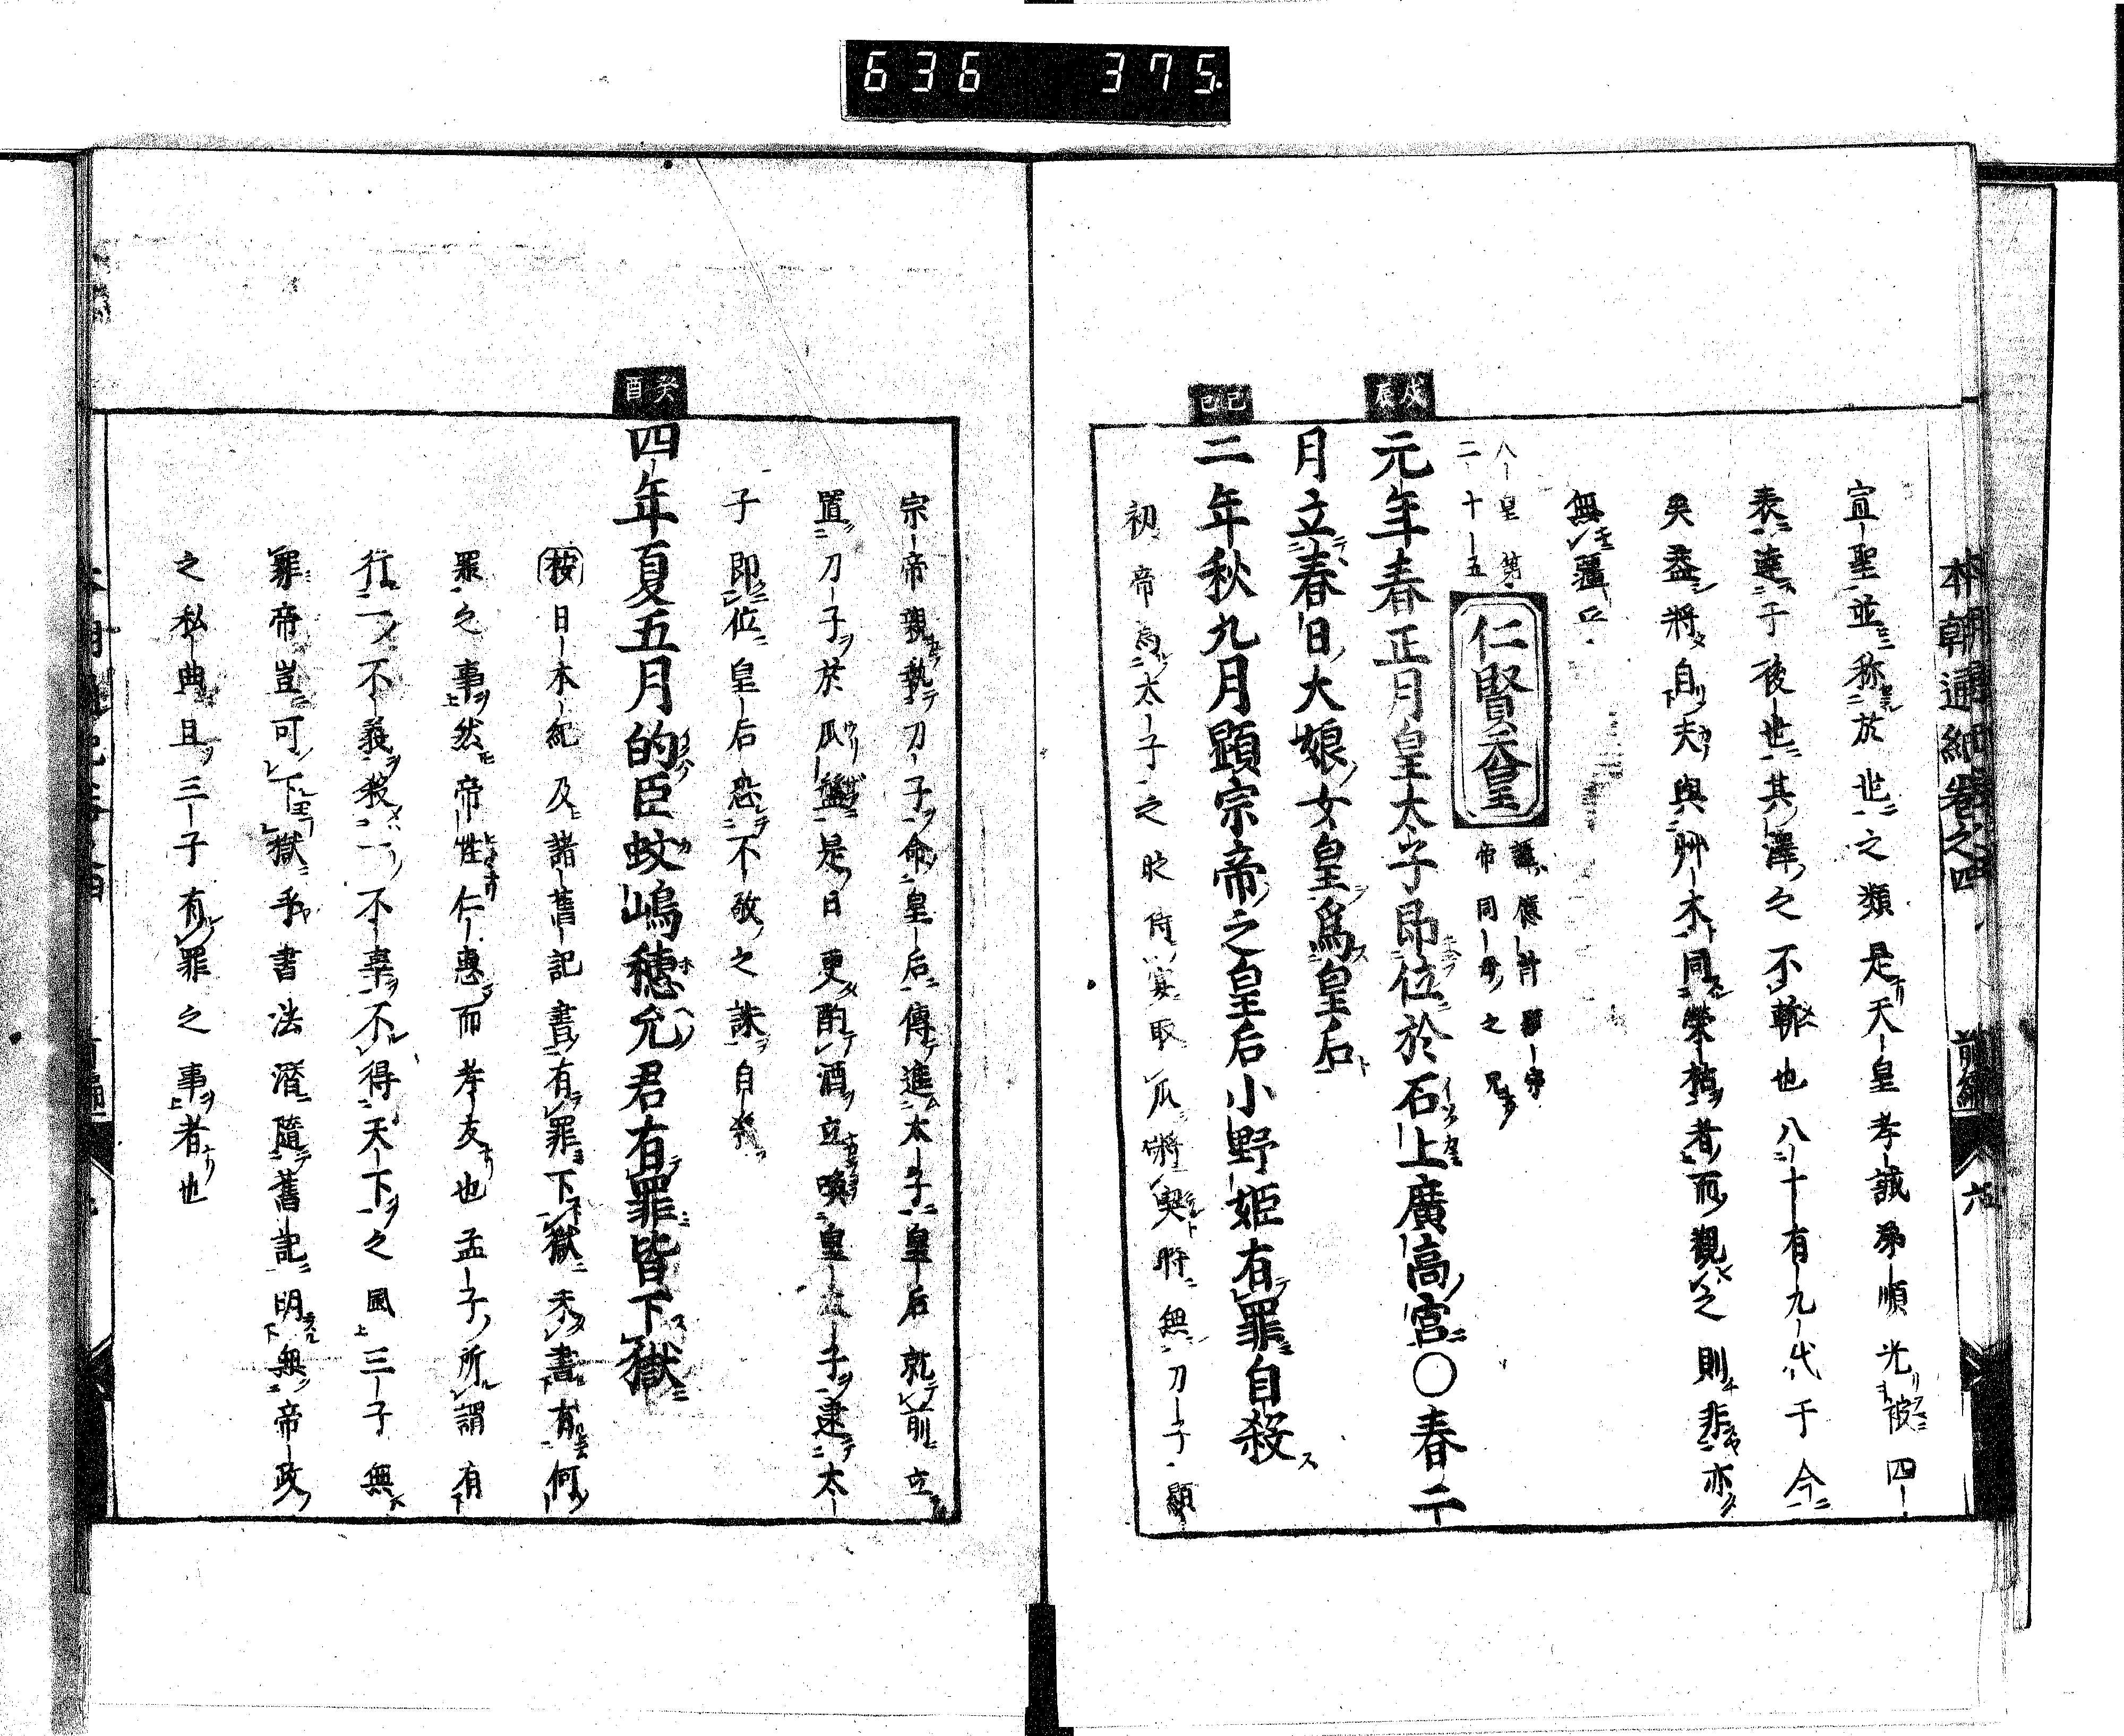 636 375
本朝通紀卷之四 前編 六
宣聖並称於世之類是天皇孝誠爲順光被四
表達子後世其澤之不斬也八十有九代于今
矣益將自夫與艸木同榮枯者而觀之則非亦
無疆乎
八皇第
二十五
仁賢天皇
諱億計顯宗
帝同母之兄
戊辰
元年春正月皇太子即位於石上廣高宮〇春二
月立春日大娘女皇爲皇后
己巳
二年秋九月顕宗帝之皇后小野姫有罪自殺
初帝爲太子之時侍宴取瓜將喫時無刀子顯
宗帝親執刀子命皇后傳進太子皇后就前立
置刀子於瓜盤是日更酌酒立喚皇太子逮太
子即位皇后恐不敬之誅自死
癸酉
四年夏五月的臣蚊嶋穗允君有罪皆下獄
按日本紀及諸舊記書有罪下獄未書有何
罪之事然帝性仁惠而孝友也孟子所謂有
行一不義殺一不辜不得天下之風三子無
罪帝豈可下獄乎書法潛隨舊記明無帝政
之私曲且三子有罪之事者也